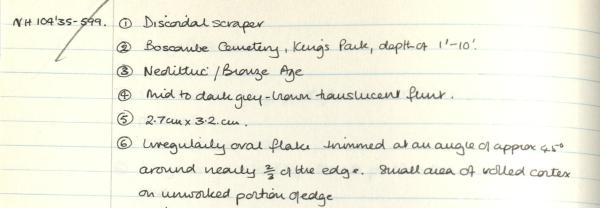 NH 104'35-599. ① Discoidal scraper
② Boscombe Cemetery, King's Park, depth of 1'-10'.
③ Neolithic / Bronze Age
④ Mid to dark grey-brown translucent flint.
⑤ 2.7cm x 3.2cm.
⑥ Irregularly oval flake trimmed at an angle of approx 45°
around nearly ⅔ of the edge. Small area of rolled cortex
on unworked portion of edge